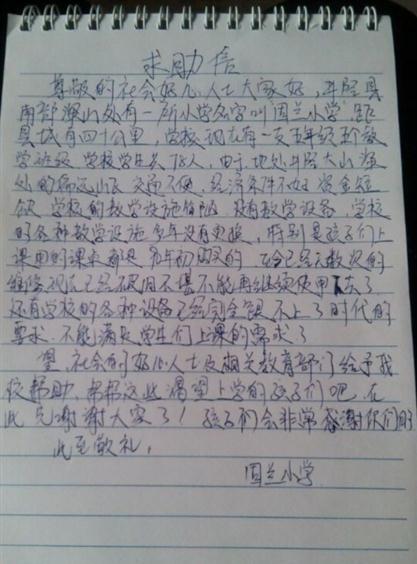 求助信
尊敬的社会好心人士大家好,丰
南部深山处有一所小学名字叫"固兰小学"距
县城有四十公里,学校现在有一支五年级五个教
学班级 学校学生共78人,由于地处 大山深
处的偏远山区 交通不便,经济条件不好 资金短
缺 学校的教学设施简陋 没有教学设备,学校
的各种教学设施多年没有更换,特别是孩子们上
课用的课桌都是 多年初购买的 在已经无数次的
维修现在已经破旧不堪不能再继续使用下去了
还有学校的各种设备已经完全跟不上了时代的
要求 不能满足学生们上课的需求了
望 社会的好心人士及相关教育部门给予我
校帮助,帮帮这些渴望上学的孩子们吧 在
此先谢谢大家了!孩子们会非常感谢你们的
此至敬礼,
固兰小学